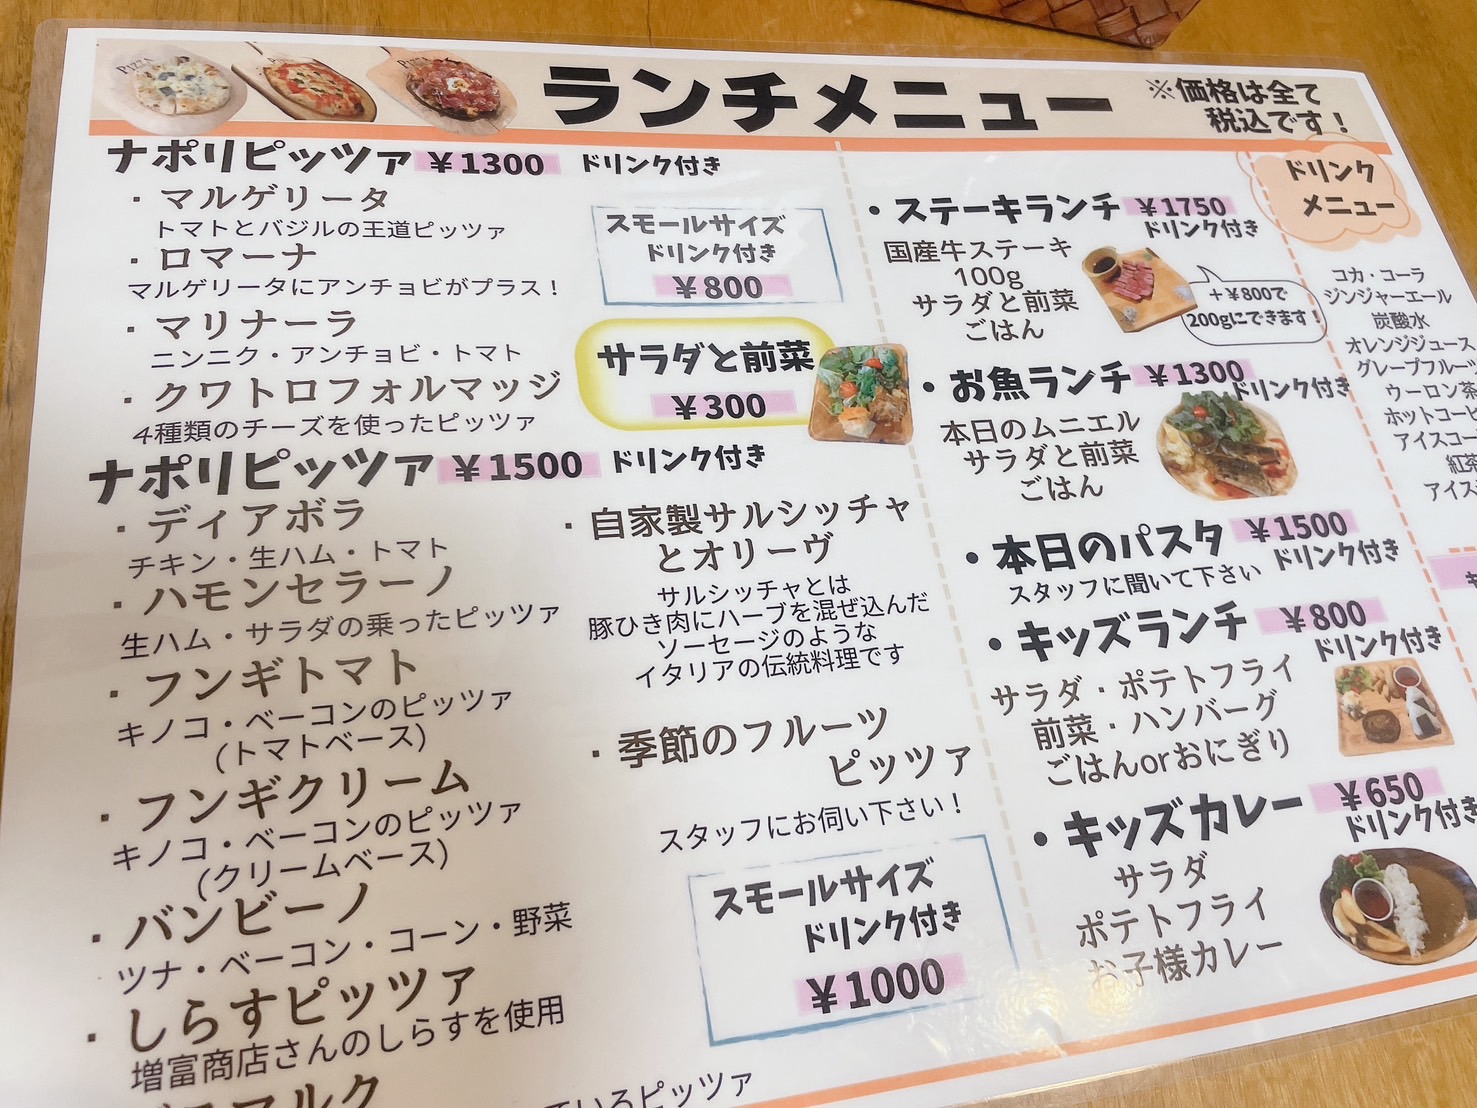 ランチメニュー
※価格は全て
税込です！
ナポリピッツァ ￥1300 ドリンク付き
・マルゲリータ
トマトとバジルの王道ピッツァ
・ロマーナ
マルゲリータにアンチョビがプラス！
・マリナーラ
ニンニク・アンチョビ・トマト
・クワトロフォルマッジ
4種類のチーズを使ったピッツァ
スモールサイズ
ドリンク付き
￥800
サラダと前菜
￥300
ナポリピッツァ ￥1500 ドリンク付き
・ディアボラ
チキン・生ハム・トマト
・ハモンセラーノ
生ハム・サラダの乗ったピッツァ
・フンギトマト
キノコ・ベーコンのピッツァ
(トマトベース)
・フンギクリーム
キノコ・ベーコンのピッツァ
(クリームベース)
・バンビーノ
ツナ・ベーコン・コーン・野菜
・しらすピッツァ
増富商店さんのしらすを使用
マルク
ているピッツァ
・自家製サルシッチャ
とオリーヴ
サルシッチャとは
豚ひき肉にハーブを混ぜ込んだ
ソーセージのような
イタリアの伝統料理です
・季節のフルーツ
ピッツァ
スタッフにお伺い下さい！
スモールサイズ
ドリンク付き
￥1000
・ステーキランチ ￥1750
ドリンク付き
国産牛ステーキ
100g
サラダと前菜
ごはん
＋￥800で
200gにできます！
・お魚ランチ ￥1300
ドリンク付き
本日のムニエル
サラダと前菜
ごはん
・本日のパスタ ￥1500
ドリンク付き
スタッフに聞いて下さい
・キッズランチ ￥800
ドリンク付き
サラダ・ポテトフライ
前菜・ハンバーグ
ごはんorおにぎり
・キッズカレー ￥650
ドリンク付き
サラダ
ポテトフライ
お子様カレー
ドリンク
メニュー
コカ・コーラ
ジンジャーエール
炭酸水
オレンジジュース
グレープフルーツ
ウーロン茶
ホットコーヒ
アイスコー
紅茶
アイス